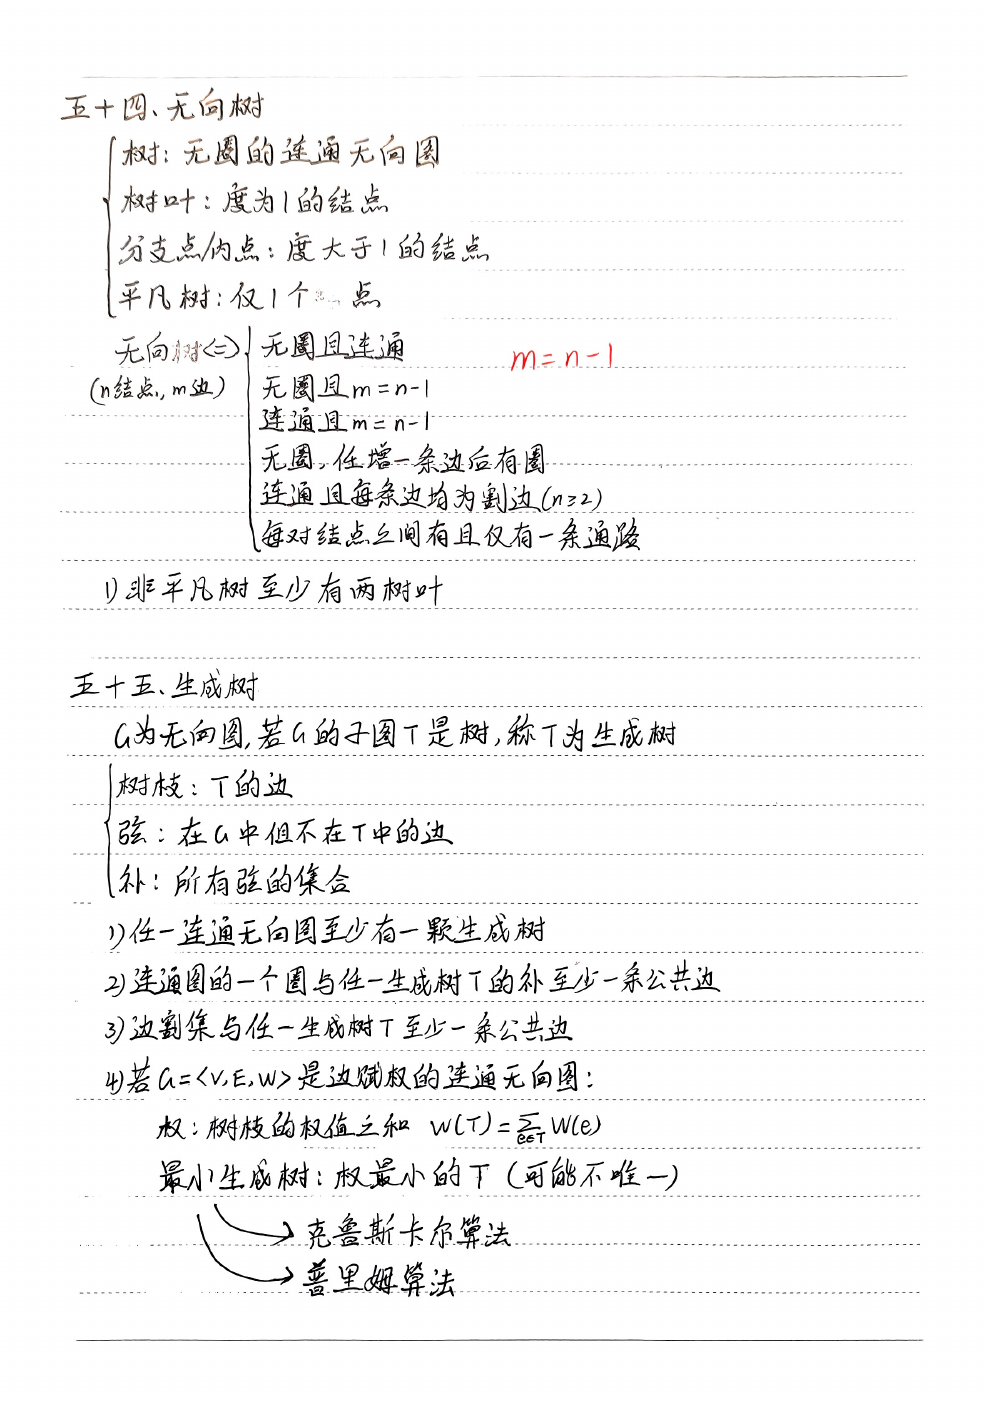 五十四、无向树
树：无圈的连通无向图
树叶：度为1的结点
分支点/内点：度大于1的结点
平凡树：仅1个 点
无向树<=>
(n结点, m边)
无圈且连通
m=n-1
无圈且m=n-1
连通且m=n-1
无圈，任增一条边后有圈
连通且每条边均为割边(n≥2)
每对结点之间有且仅有一条通路
1)非平凡树至少有两树叶
五十五、生成树
G为无向图,若G的子图T是树,称T为生成树
树枝：T的边
弦：在G中但不在T中的边
补：所有弦的集合
1)任一连通无向图至少有一颗生成树
2)连通图的一个圈与任一生成树T的补至少一条公共边
3)边割集与任一生成树T至少一条公共边
4)若G=<V,E,W>是边赋权的连通无向图：
权：树枝的权值之和 W(T)=∑e∈T W(e)
最小生成树：权最小的T (可能不唯一)
克鲁斯卡尔算法
普里姆算法